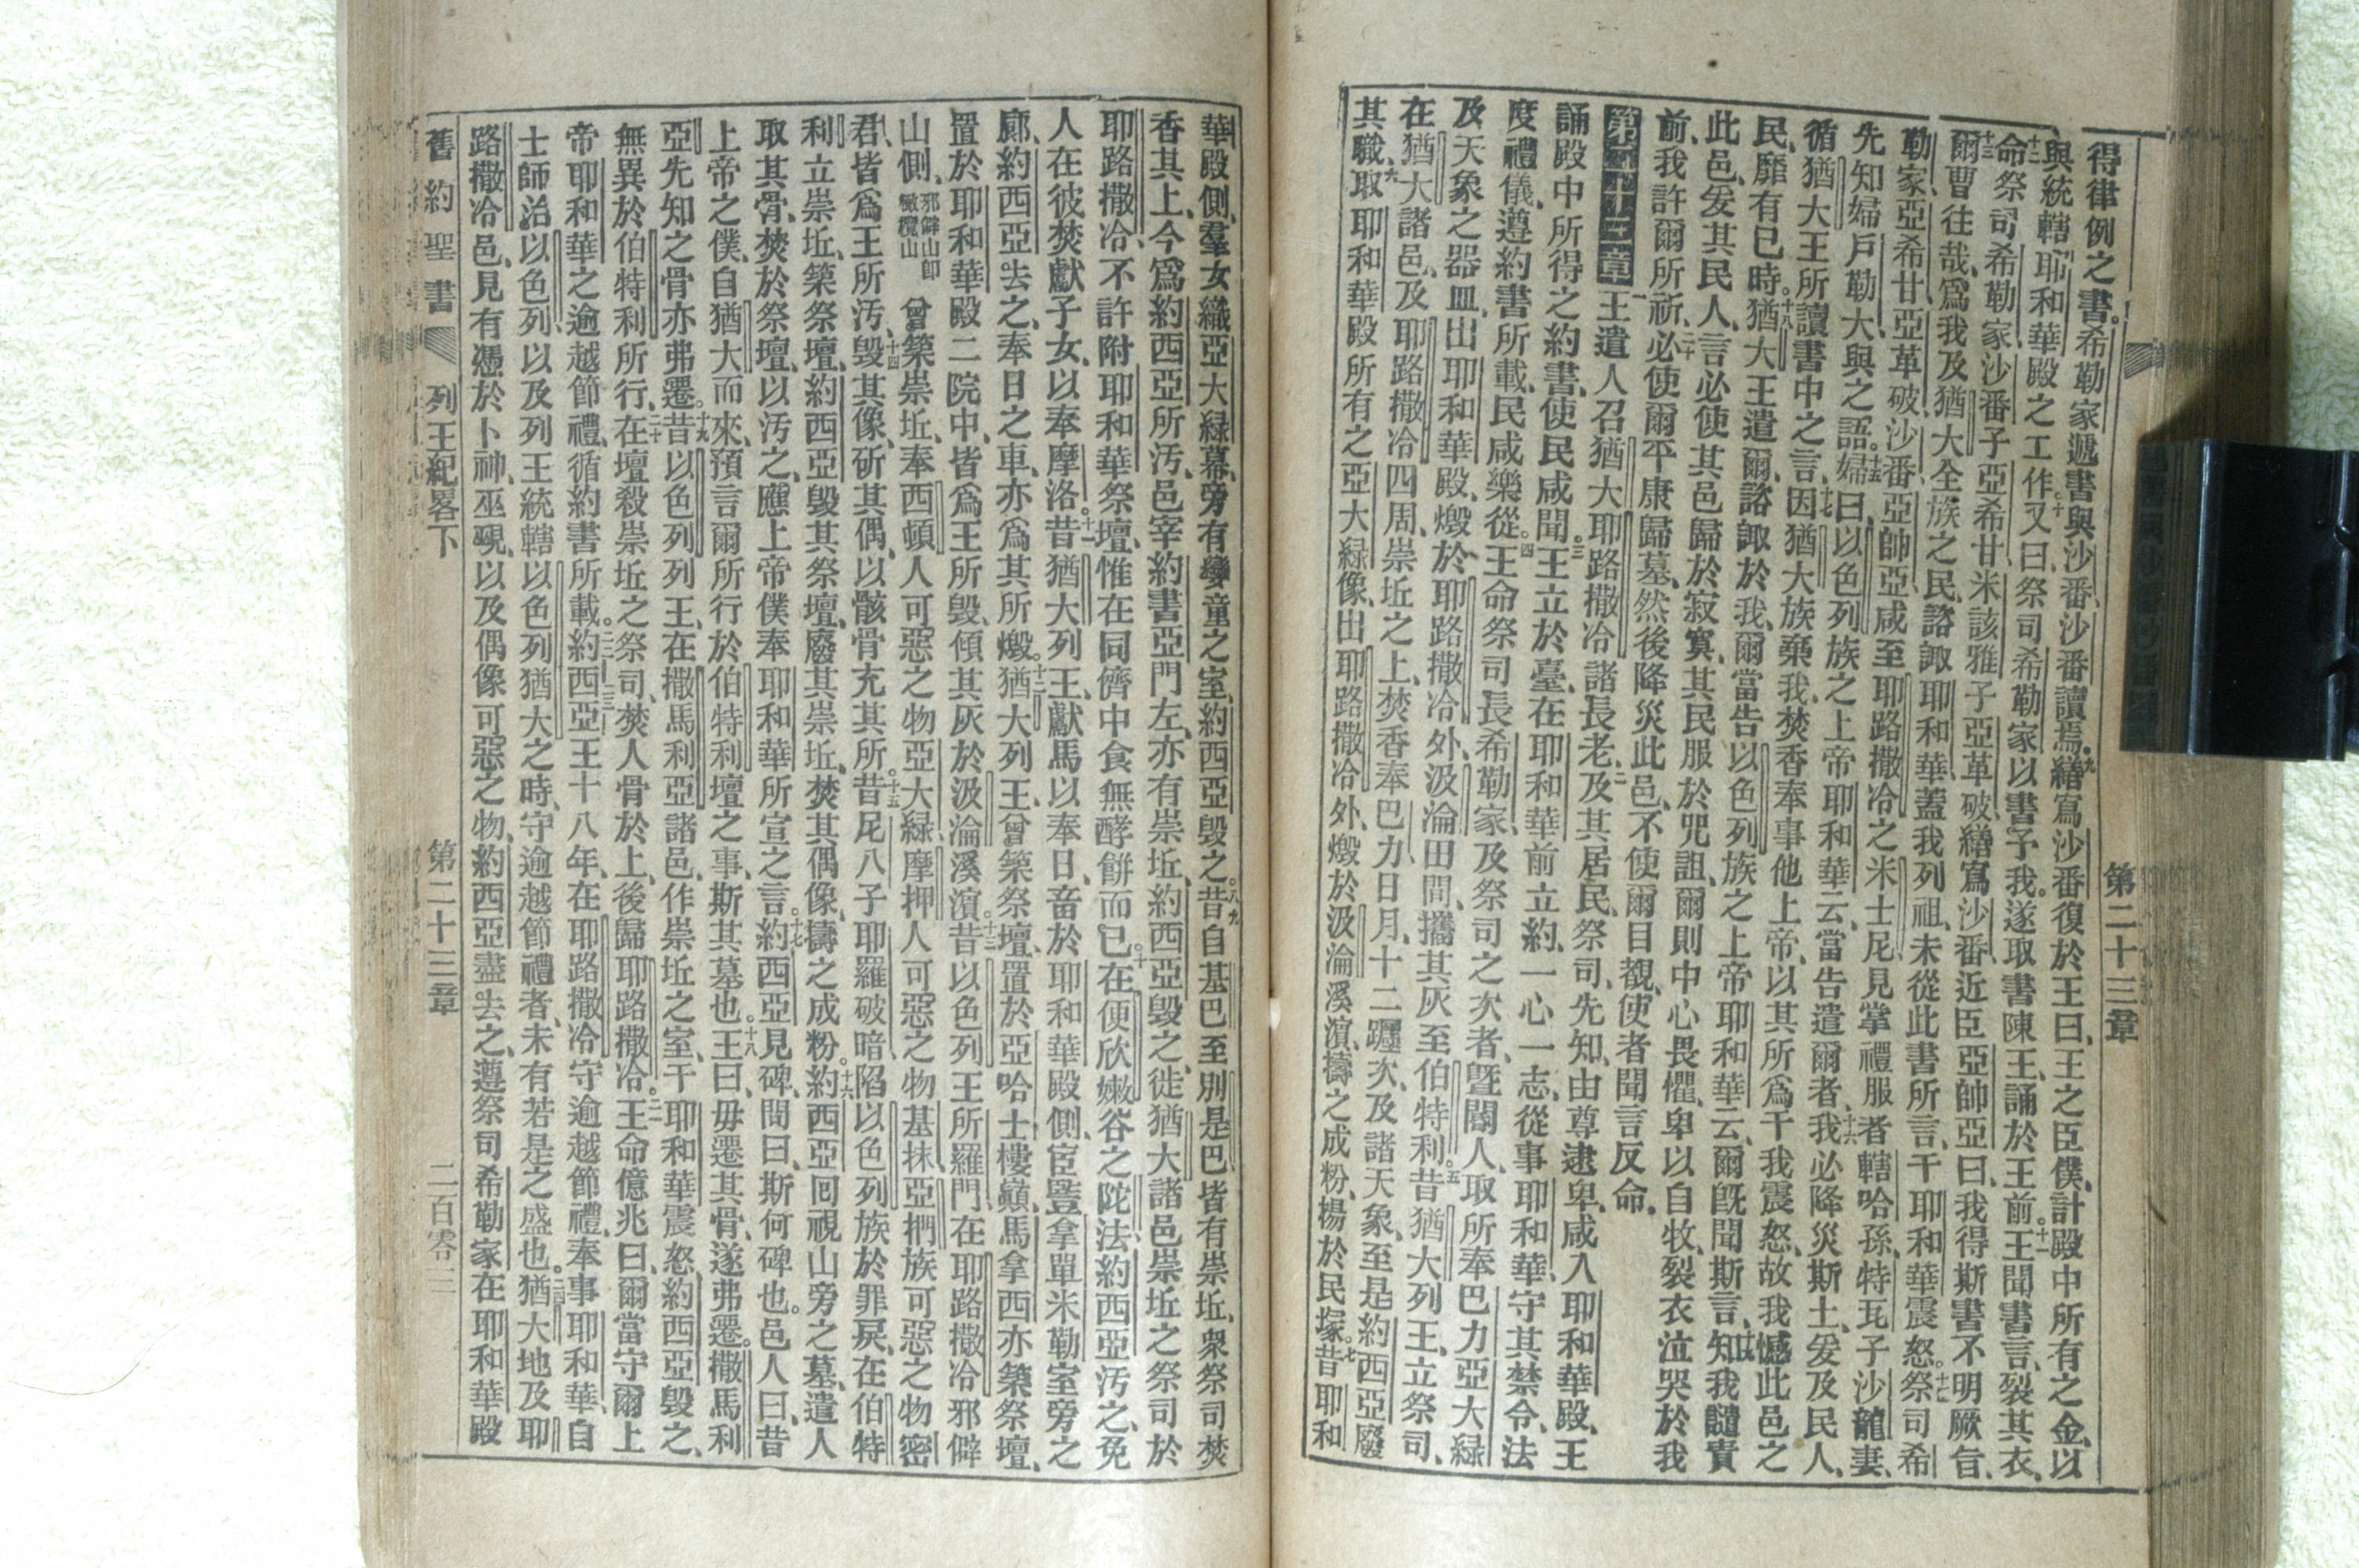 第二十三章
得律例之書。希勒家遞書與沙番、沙番讀焉。九繕寫沙番復於王曰、王之臣僕、計殿中所有之金、以
與統轄耶和華殿之工作。十又曰、祭司希勒家以書予我。遂取書陳王、誦於王前。十一王聞書言、裂其衣、
十二命祭司希勒家、沙番子亞希甘、米該雅子亞革破、繕寫沙番、近臣亞帥亞曰、我得斯書不明厥旨、
十三爾曹往哉、爲我及猶大全族之民、諮諏耶和華、蓋我列祖、未從此書所言、干耶和華震怒。十四祭司希
勒家、亞希甘、亞革破、沙番、亞帥亞、咸至耶路撒冷之米士尼、見掌禮服者、轄哈孫、特瓦子沙龍妻、
先知婦戶勒大、與之語。十五婦曰、以色列族之上帝耶和華云、當告遣爾者、十六我必降災斯土、爰及民人、
循猶大王所讀書中之言、十七因猶大族棄我、焚香奉事他上帝、以其所爲干我震怒、故我憾此邑之
民、靡有已時。十八猶大王遣爾、諮諏於我、爾當告以色列族之上帝耶和華云、爾旣聞斯言、十九知我譴責
此邑、爰及其民人、言必使其邑歸於寂寞、其民服於咒詛、爾則中心畏懼、卑以自牧、裂衣泣哭於我
前、我許爾所祈、二十必使爾平康歸墓、然後降災此邑、不使爾目覩、使者聞言反命。
第二十三章一王遣人召猶大耶路撒冷諸長老、二及其居民、祭司、先知、由尊逮卑、咸入耶和華殿、王
誦殿中所得之約書、使民咸聞。三王立於臺、在耶和華前立約、一心一志、從事耶和華、守其禁令、法
度、禮儀、遵約書所載、民咸樂從。四王命祭司長希勒家、及祭司之次者、曁閽人、取所奉巴力亞大綠
及天象之器皿、出耶和華殿、燬於耶路撒冷外、汲淪田間、攜其灰至伯特利。五昔猶大列王、立祭司、
在猶大諸邑、及耶路撒冷四周、崇坵之上、焚香奉巴力日月、十二躔次、及諸天象、至是約西亞廢
其職、六取耶和華殿所有之亞大綠像、出耶路撒冷外、燬於汲淪溪濱、擣之成粉、楊於民塚。七昔耶和
華殿側、羣女織亞大緑幕、旁有孌童之室、約西亞毀之。八九昔自基巴至別是巴、皆有崇坵、衆祭司焚
香其上、今爲約西亞所汚、邑宰約書亞門左、亦有崇坵、約西亞毀之、徙猶大諸邑崇坵之祭司於
耶路撒冷、不許附耶和華祭壇、惟在同儕中食無酵餅而已。十在便欣嫩谷之陀法、約西亞汚之、免
人在彼焚獻子女、以奉摩洛。十一昔猶大列王、獻馬以奉日、畜於耶和華殿側、宦豎拿單米勒室旁之
廊、約西亞去之、奉日之車、亦爲其所燬。十二猶大列王、曾築祭壇、置於亞哈士樓巔、馬拿西亦築祭壇、
置於耶和華殿二院中、皆爲王所毀、傾其灰於汲淪溪濱。十三昔以色列王所羅門、在耶路撒冷邪僻
山側、邪僻山卽橄欖山曾築崇坵、奉西頓人可惡之物亞大綠、摩押人可惡之物基抹、亞捫族可惡之物密
君、皆爲王所汚、十四毀其像、斫其偶、以骸骨充其所。十五昔尼八子耶羅破暗、陷以色列族於罪戾、在伯特
利立崇坵、築祭壇、約西亞毀其祭壇、廢其崇坵、焚其偶像、擣之成粉。十六約西亞回視山旁之墓、遣人
取其骨、焚於祭壇、以汚之、應上帝僕奉耶和華所宣之言。十七約西亞見碑、問曰、斯何碑也。邑人曰、昔
上帝之僕、自猶大而來、預言爾所行於伯特利壇之事、斯其墓也。十八王曰、毋遷其骨、遂弗遷。撒馬利
亞先知之骨亦弗遷。十九昔以色列列王、在撒馬利亞諸邑、作崇坵之室、干耶和華震怒、約西亞毀之、
無異於伯特利所行、二十在壇殺崇坵之祭司、焚人骨於上、後歸耶路撒冷。二一王命億兆曰、爾當守爾上
帝耶和華之逾越節禮、循約書所載。二二二三約西亞王十八年、在耶路撒冷守逾越節禮、奉事耶和華、自
士師治以色列、以及列王統轄以色列猶大之時、守逾越節禮者、未有若是之盛也。二四猶大地及耶
路撒冷邑、見有憑於卜神、巫覡、以及偶像可惡之物、約西亞盡去之、遵祭司希勒家在耶和華殿
舊約聖書 列王紀畧下 第二十三章 二百零三